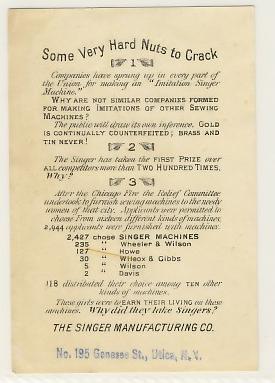 Some Very Hard Nuts to Crack
1
Companies have sprung up in every part of
the Union for making an "Imitation Singer
Machine."
WHY ARE NOT SIMILAR COMPANIES FORMED
FOR MAKING IMITATIONS OF OTHER SEWING
MACHINES?
The public will draw its own inference. GOLD
IS CONTINUALLY COUNTERFEITED; BRASS AND
TIN NEVER!
2
The Singer has taken the FIRST PRIZE over
all competitors more than TWO HUNDRED TIMES,
Why?
3
After the Chicago Fire the Relief Committee
undertook to furnish sewing machines to the needy
women of that city. Applicants were permitted to
choose from sixteen different kinds of machines.
2,944 applicants were furnished with machines.
2,427 chose SINGER MACHINES
235 " Wheeler & Wilson
127 " Howe
30 " Wilcox & Gibbs
5 " Wilson
2 " Davis
118 distributed their choice among TEN other
kinds of machines.
These girls were to EARN THEIR LIVING on these
machines. Why did they take Singers?
THE SINGER MANUFACTURING CO.
No. 195 Genesee St., Utica, N.Y.